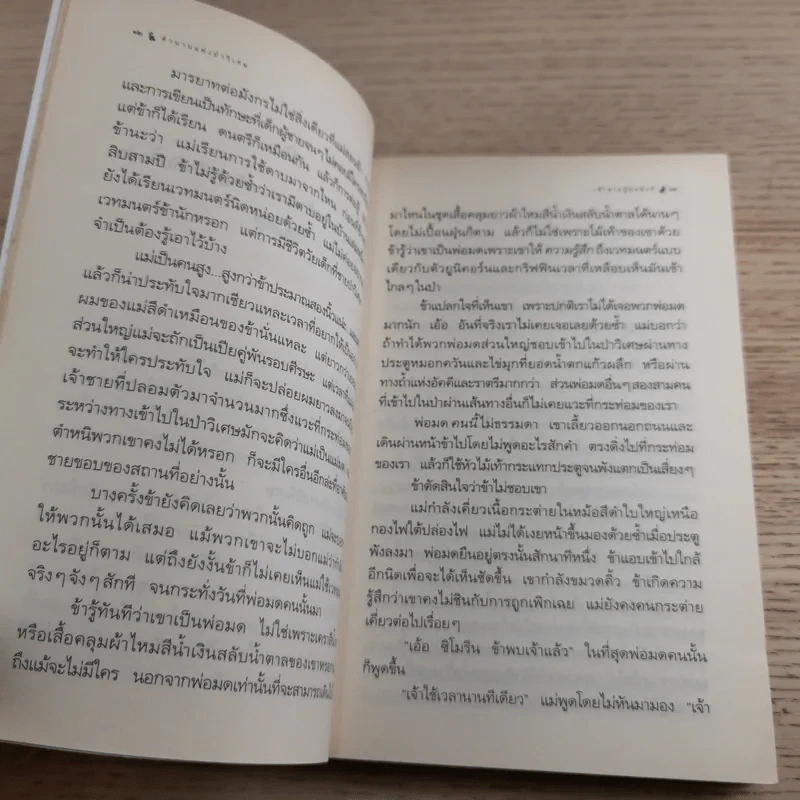 ๑๒ ตำนานแห่งป่าวิเศษ
มารยาทต่อมังกรไม่ใช่สิ่งเดียวที่แม่สอนข้า
และการเขียนเป็นทักษะที่เด็กผู้ชายจนๆ ไม่ค่อยมี
แต่ข้าก็ได้เรียน ดนตรีก็เหมือนกัน แล้วก็การต่อสู้
ข้านะว่า แม่เรียนการใช้ดาบมาจากไหน ก่อนที่
สิบสามปี ข้าไม่รู้ด้วยซ้ำว่าเรามีดาบอยู่ในบ้าน
ยังได้เรียนเวทมนตร์นิดหน่อยด้วยซ้ำ แม่ไม่
เวทมนตร์ข้านักหรอก แต่การมีชีวิตวัยเด็กที่ชายป่า
จำเป็นต้องรู้เอาไว้บ้าง
แม่เป็นคนสูง...สูงกว่าข้าประมาณสองนิ้วแน่ะ
แล้วก็น่าประทับใจมากเชียวแหละเวลาที่อยากให้เป็น
ผมของแม่สีดำเหมือนของข้านั่นแหละ แต่ยาวกว่า
ส่วนใหญ่แม่จะถักเป็นเปียคู่พันรอบศีรษะ แต่เวลาที่
จะทำให้ใครประทับใจ แม่ก็จะปล่อยผมยาวลงมา
เจ้าชายที่ปลอมตัวมาจำนวนมากซึ่งแวะที่กระท่อม
ระหว่างทางเข้าไปในป่าวิเศษมักจะคิดว่าแม่เป็น
ตำหนิพวกเขาคงไม่ได้หรอก ก็จะมีใครอื่นอีกล่ะที่
ชายขอบของสถานที่อย่างนั้น
บางครั้งข้ายังคิดเลยว่าพวกนั้นคิดถูก แม่
ให้พวกนั้นได้เสมอ แม้พวกเขาจะไม่บอกแม่ว่า
อะไรอยู่ก็ตาม แต่ถึงยังงั้นข้าก็ไม่เคยเห็นแม่ใช้
จริงๆ จังๆ สักที จนกระทั่งวันที่พ่อมดคนนั้นมา
ข้ารู้ทันทีว่าเขาเป็นพ่อมด ไม่ใช่เพราะเครา
หรือเสื้อคลุมผ้าไหมสีน้ำเงินสลับน้ำตาลของเขาหรอก
ถึงแม้จะไม่มีใคร นอกจากพ่อมดเท่านั้นที่จะสามารถ
มาไหนในชุดเสื้อคลุมยาวผ้าไหมสีน้ำเงินสลับน้ำตาลได้นานๆ
โดยไม่เปื้อนฝุ่นก็ตาม แล้วก็ไม่ใช่เพราะไม้เท้าของเขาด้วย
ข้ารู้ว่าเขาเป็นพ่อมดเพราะเขาให้ ความรู้สึก ถึงเวทมนตร์แบบ
เดียวกับตัวยูนิคอร์นและกริฟฟินเวลาที่เหลือบเห็นมันเข้า
ไกลๆ ในป่า
ข้าแปลกใจที่เห็นเขา เพราะปกติเราไม่ได้เจอพวกพ่อมด
มากนัก เอ้อ อันที่จริงเราไม่เคยเจอเลยด้วยซ้ำ แม่บอกว่า
ถ้าทำได้พวกพ่อมดส่วนใหญ่ชอบเข้าไปในป่าวิเศษผ่านทาง
ประตูหมอกควันและไข่มุกที่ยอดน้ำตกแก้วผลึก หรือผ่าน
ทางถ้ำแห่งอัคคีและราตรีมากกว่า ส่วนพ่อมดอื่นๆ สองสามคน
ที่เข้าไปในป่าผ่านเส้นทางอื่นก็ไม่เคยแวะที่กระท่อมของเรา
พ่อมด คนนี้ ไม่ธรรมดา เขาเลี้ยวออกนอกถนนและ
เดินผ่านหน้าข้าไปโดยไม่พูดอะไรสักคำ ตรงดิ่งไปที่กระท่อม
ของเรา แล้วก็ใช้หัวไม้เท้ากระแทกประตูจนพังแตกเป็นเสี่ยงๆ
ข้าตัดสินใจว่าข้าไม่ชอบเขา
แม่กำลังเคี่ยวเนื้อกระต่ายในหม้อสีดำใบใหญ่เหนือ
กองไฟใต้ปล่องไฟ แม่ไม่ได้เงยหน้าขึ้นมองด้วยซ้ำเมื่อประตู
พังลงมา พ่อมดยืนอยู่ตรงนั้นสักนาทีหนึ่ง ข้าแอบเข้าไปใกล้
อีกนิดเพื่อจะได้เห็นชัดขึ้น เขากำลังขมวดคิ้ว ข้าเกิดความ
รู้สึกว่าเขาคงไม่ชินกับการถูกเพิกเฉย แม่ยังคงคนกระต่าย
เคี่ยวต่อไปเรื่อยๆ
"เอ้อ ซิโมรีน ข้าพบเจ้าแล้ว" ในที่สุดพ่อมดคนนั้น
ก็พูดขึ้น
"เจ้าใช้เวลานานทีเดียว" แม่พูดโดยไม่หันมามอง "เจ้า